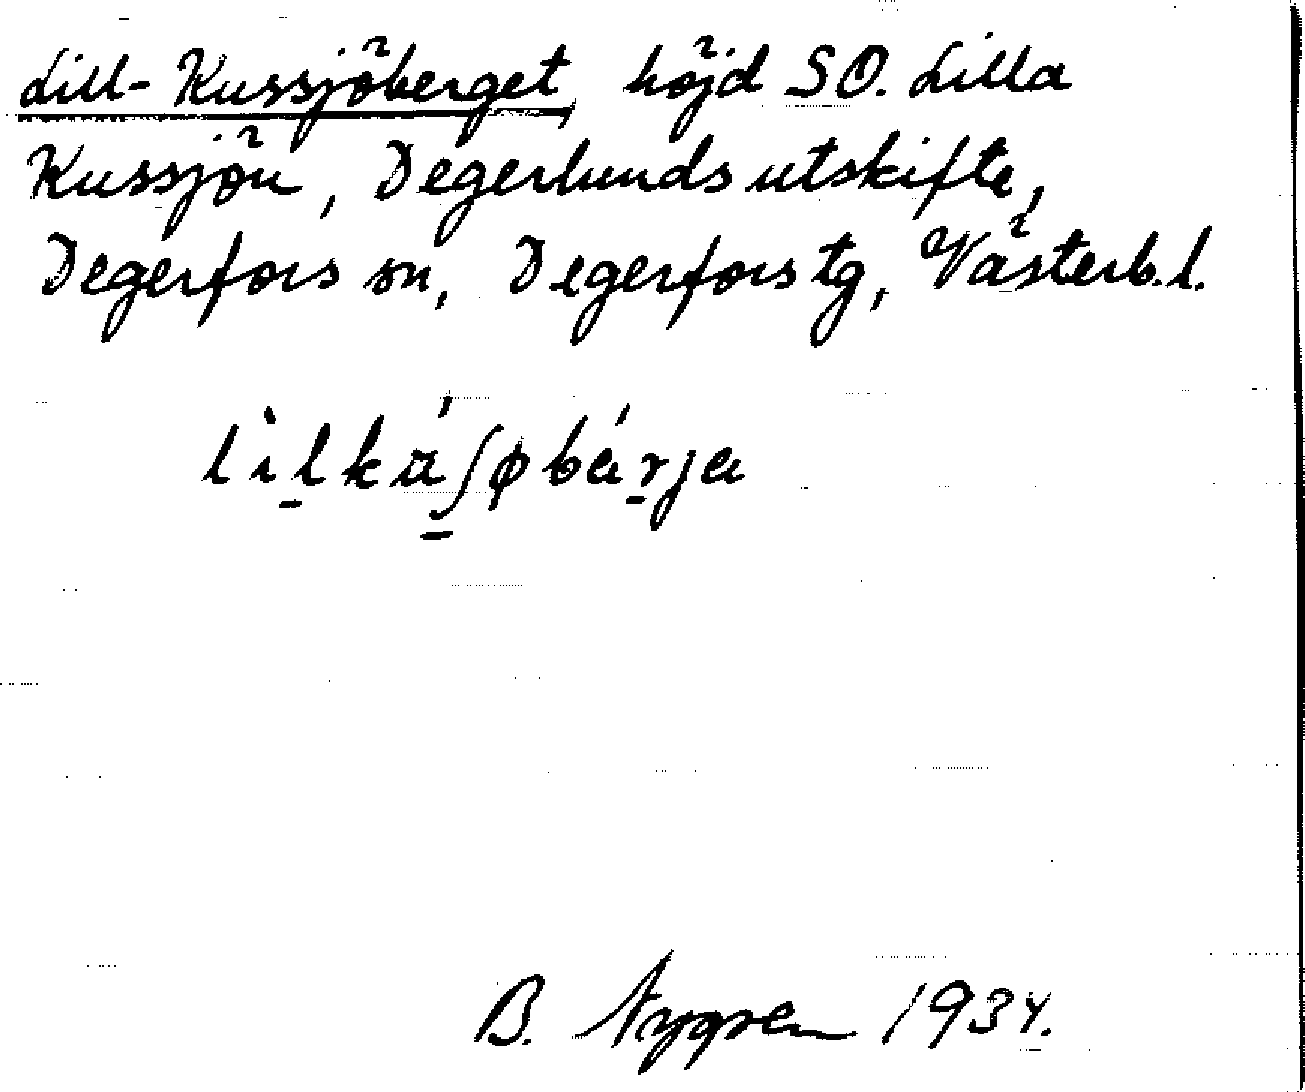 Lill-Kussjöberget, höjd SO. Lilla
Kussjön, Degerlunds utskifte,
Degerfors sn, Degerfors tg, Västerb. l.
B. Nygren 1934.